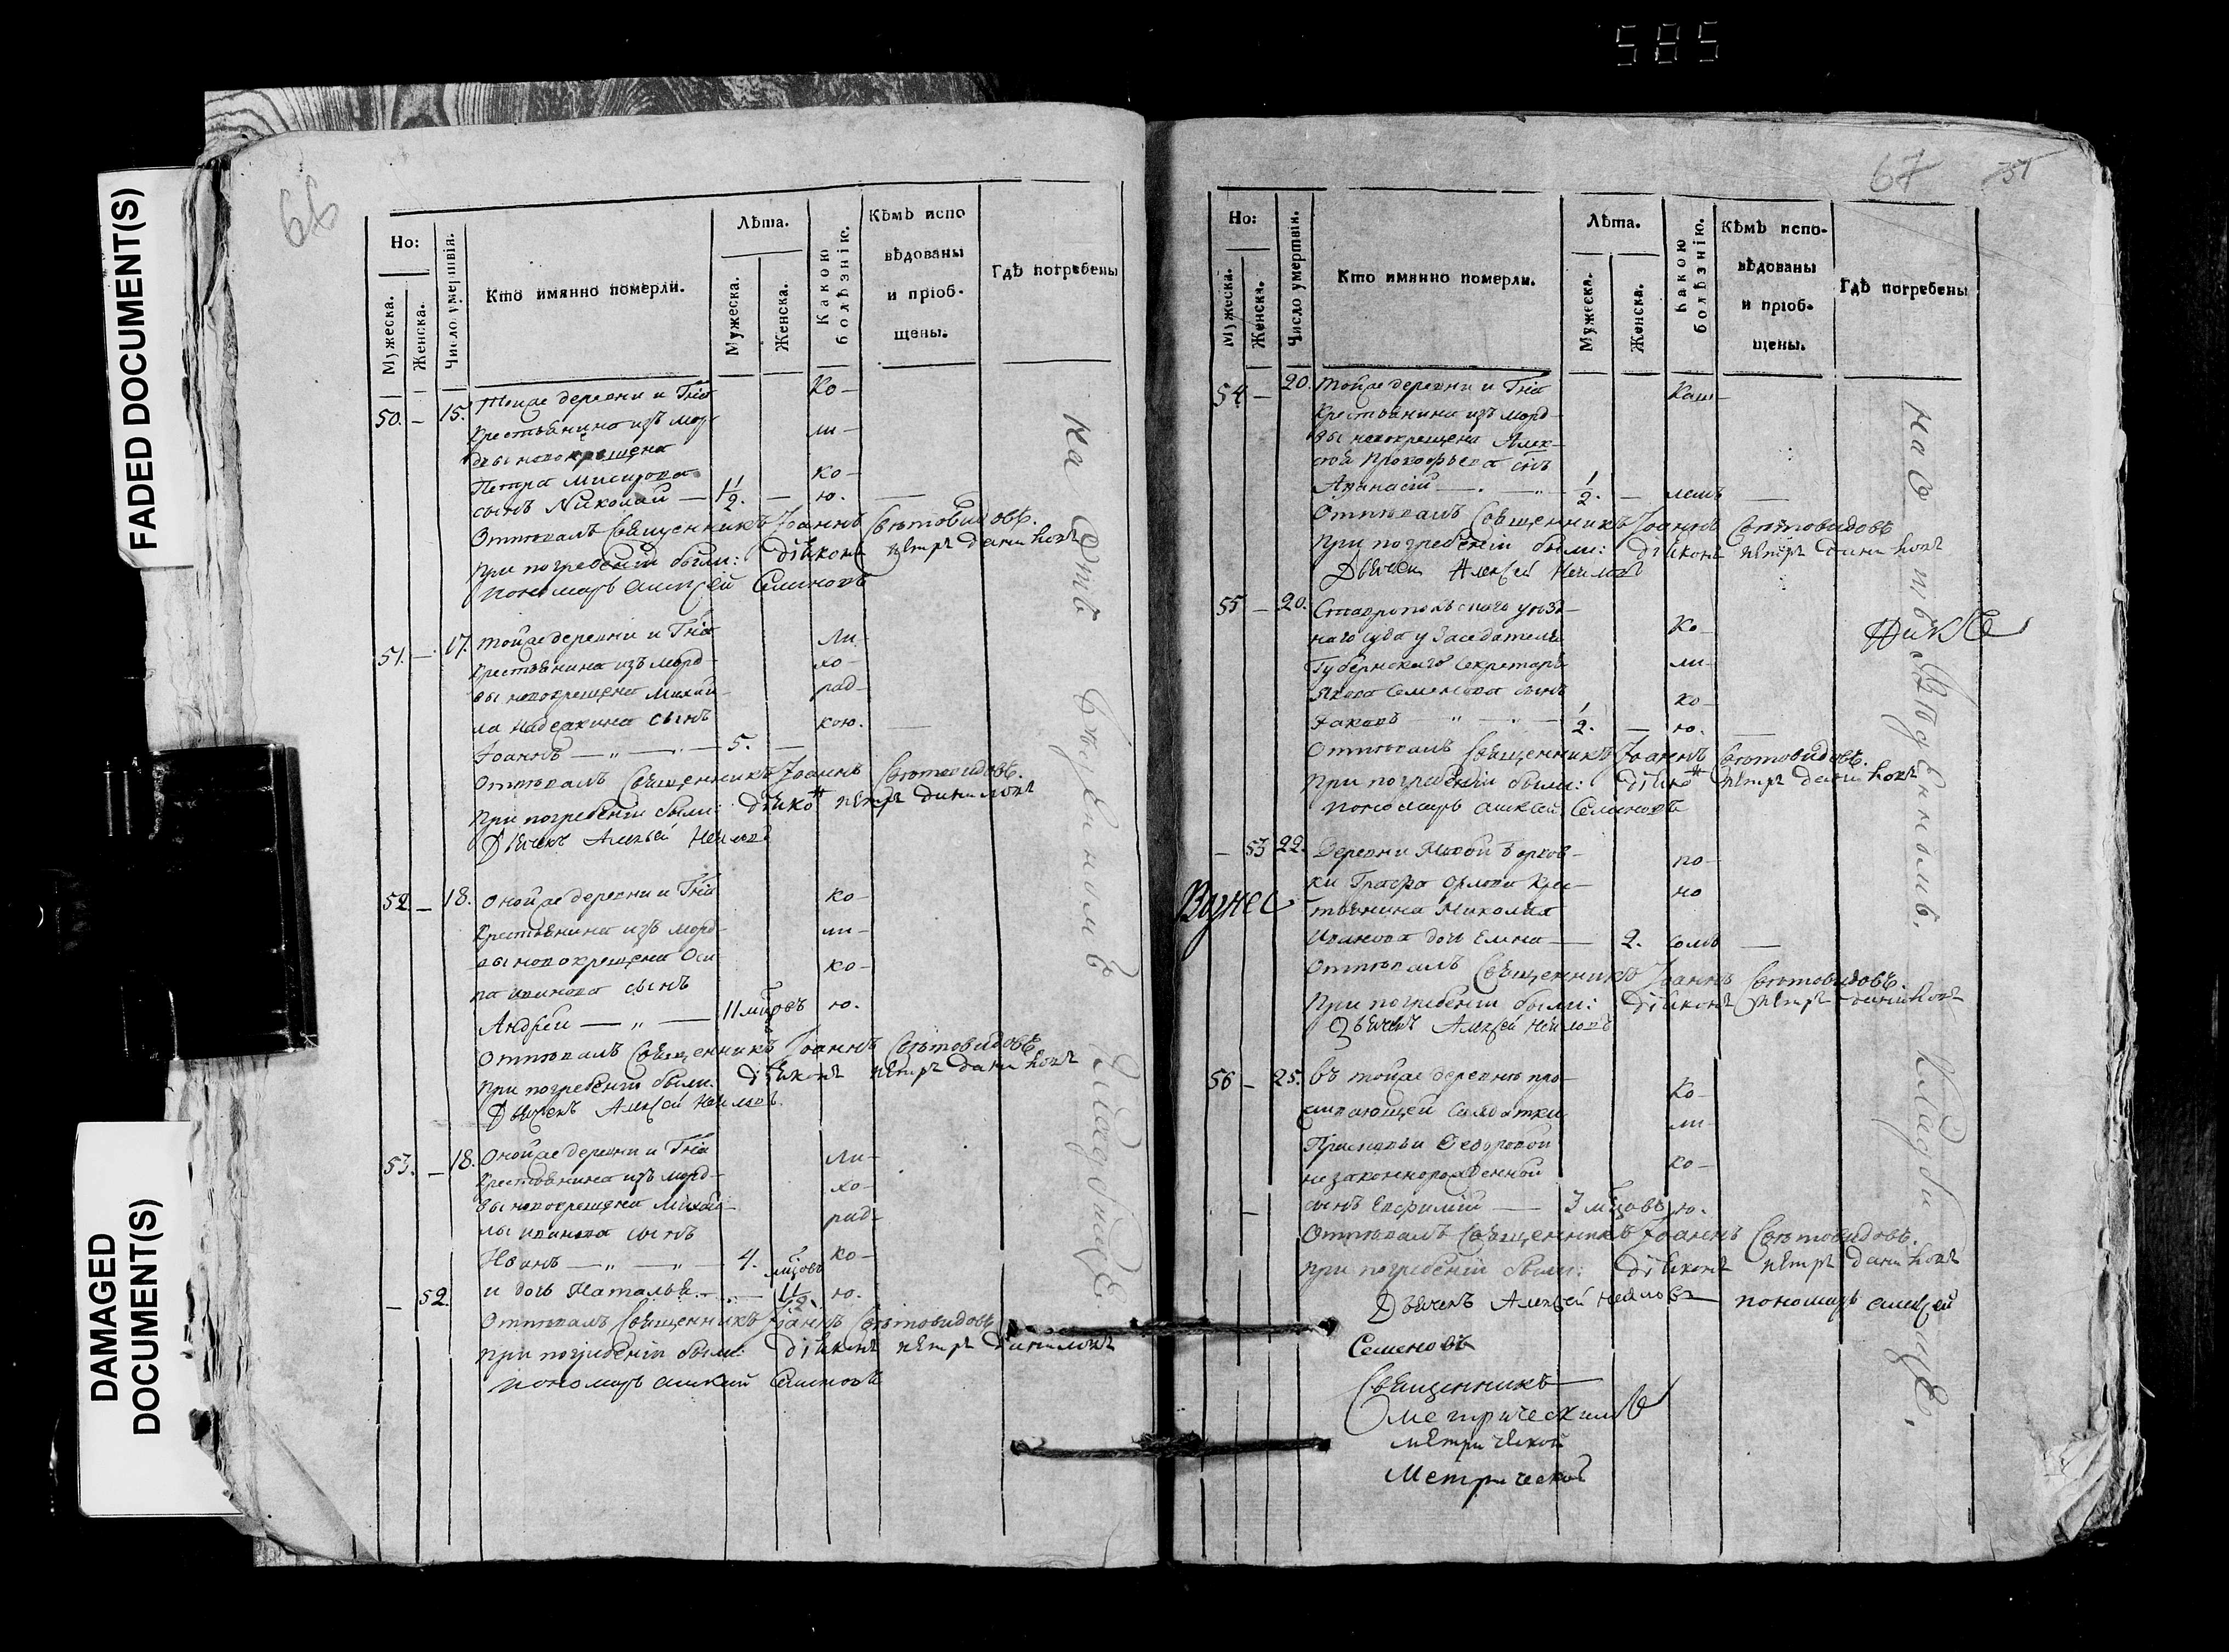 585
FADED DOCUMENT(S)
DAMAGED
DOCUMENT(S)
66
Но:
Мужеска.
Женска.
Число умертвія.
Кто имянно померли.
Лѣта.
Мужеска.
Женска.
Какою
болѣзнію.
Кѣмъ испо
вѣдованы
и пріоб-
щены.
Гдѣ погребены
50. — 15. тойже деревни и Гна Ко-
крестьянина изъ мор- ли-
двы новокрещена
Петра ко-
сынъ Николай — 1 1/2. — ю. —
Отпѣвалъ Священникъ Іоаннъ Свѣтовидовъ.
При погребеніи были: діяконъ петръ даниловъ
пономарь алексей Семеновъ
51. — 17. тойже деревни и Гна Ли-
крестьянина изъ морд- хо-
вы новокрещена Михай- рад-
ла сынъ кою. —
Іоаннъ — „ — 5. —
Отпѣвалъ Священникъ Іоаннъ Свѣтовидовъ.
При погребеніи были: діяконъ петръ даниловъ
Дьячекъ Алексей Неиловъ
52 — 18. Онойже деревни и Гна ко-
крестьянина изъ морд- ли-
вы новокрещена Оси- ко-
па иванова сынъ
Андрей — „ — 11 мцовъ ю.
Отпѣвалъ Священникъ Іоаннъ Свѣтовидовъ
При погребеніи были. діяконъ петръ даниловъ
Дьячекъ Алексей Неиловъ
53. — 18. Онойже деревни и Гна Ли-
крестьянина изъ морд- хо-
вы новокрещена Михай- рад-
лы иванова сынъ
Иоанъ — „ — „ — 4. ко-
мцовъ
— 52. и дочь Наталья — 11/2. ю.
Отпѣвалъ Священникъ Іоаннъ Свѣтовидовъ
при погребеніи были: діяконъ петръ даниловъ
пономарь алексей Семеновъ
На Отведенномъ Кладбищѣ.
67
51
Но:
Мужеска.
Женска.
Число умертвія.
Кто имянно померли.
Лѣта.
Мужеска.
Женска.
Какою
болѣзнію.
Кѣмъ испо-
вѣдованы
и пріоб-
щены.
Гдѣ погребены
54 — 20. тойже деревни и Гна Каш-
крестьянина изъ морд-
вы новокрещена Алек-
сѣя Прокофьева сынъ
Афанасій — „ — 1/2. — лемъ —
Отпѣвалъ Священникъ Іоаннъ Свѣтовидовъ
При погребеніи были: діяконъ петръ даниловъ
Дьячекъ Алексей Неиловъ
55 — 20. Ставропольскаго уѣзд-
наго суда у Заседателя Ко-
Губернскаго Секретаря ли-
Якова Семенова сынъ ко-
Іаковъ — „ — „ — 1/2. — ю. —
Отпѣвалъ Священникъ Іоаннъ Свѣтовидовъ.
При погребеніи были: діяконъ петръ даниловъ
пономарь алексей Семеновъ
— 53 22. Деревни Малой Борков- по-
ки Графа Орлова Крес- но
Вознес
тьянина Николая
Иванова дочь Елена — 2. сомъ —
Отпѣвалъ Священникъ Іоаннъ Свѣтовидовъ.
При погребеніи были: діяконъ петръ даниловъ
Дьячекъ Алексей Неиловъ
56 — 25. въ тойже деревнѣ про-
живающей Салдатки Ко-
ли-
Федоровой ко-
незаконнорожденной
сынъ Евфимій — 3 мцовъ ю.
Отпѣвалъ Священникъ Іоаннъ Свѣтовидовъ.
При погребеніи были: діяконъ петръ даниловъ
Дьячекъ Алексей Неиловъ пономарь алексей
Семеновъ
Священникъ
метрической
Метрической
На Отведенномъ Кладбищѣ.